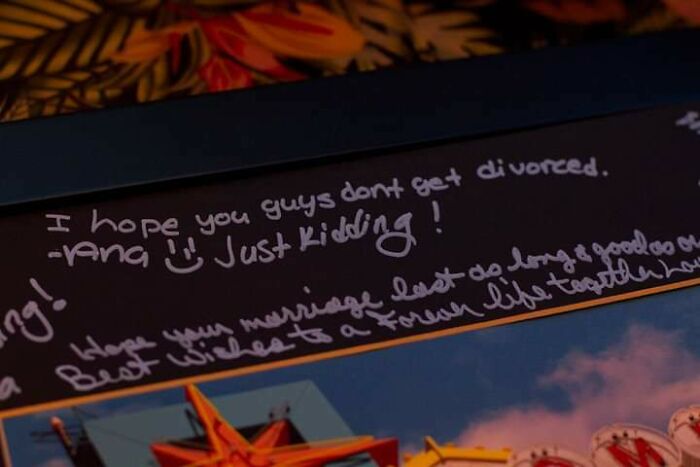 I hope you guys dont get divorced.
-Ana Just Kidding!
ng!
Hope your marriage last as long & good as ou
Best wishes to a Forever life together Lo
a
W